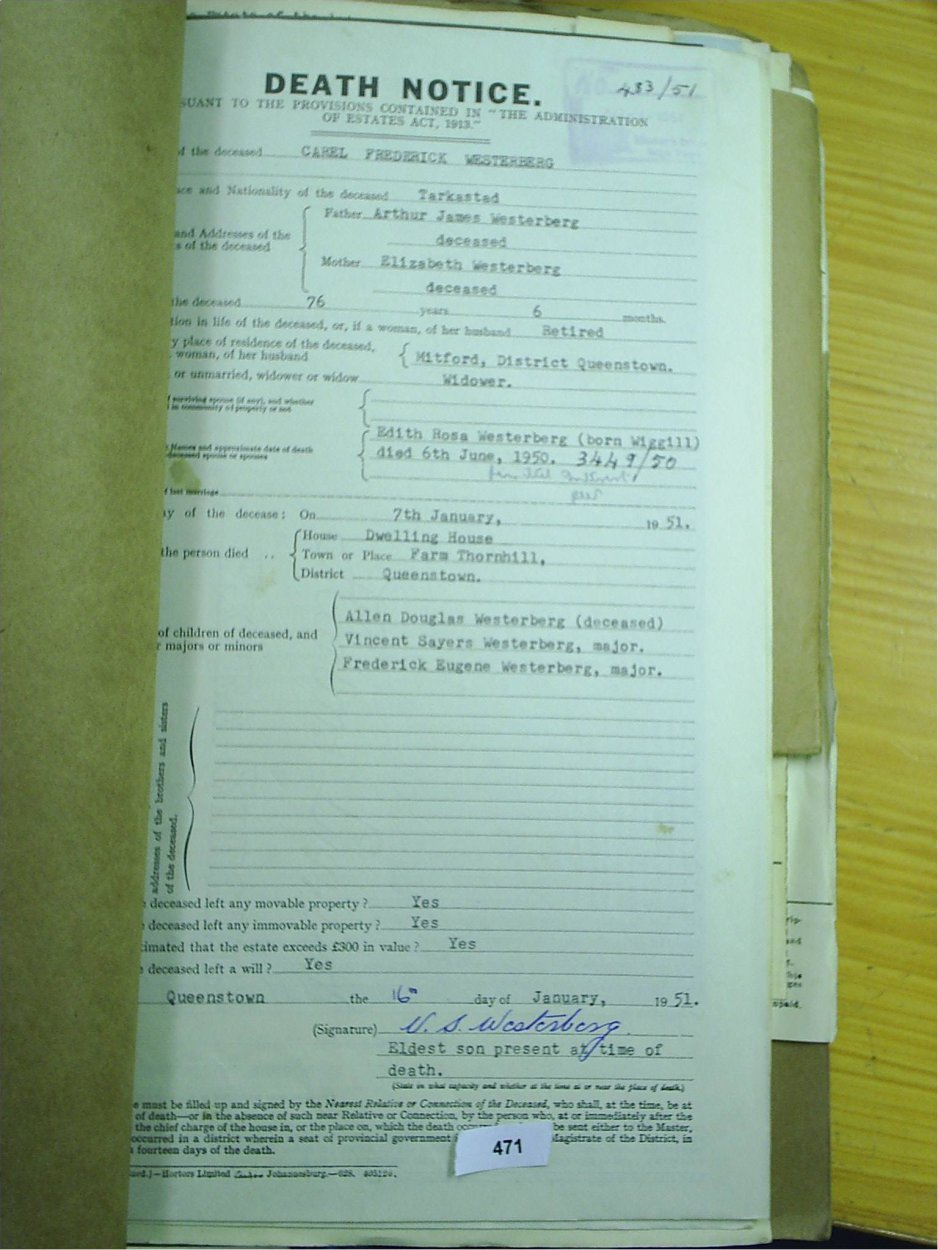 DEATH NOTICE.
483/51
SUANT TO THE PROVISIONS CONTAINED IN "THE ADMINISTRATION
OF ESTATES ACT, 1913."
of the deceased CAREL FREDERICK WESTERBERG
ace and Nationality of the deceased Tarkastad
Father Arthur James Westerberg
deceased
and Addresses of the
s of the deceased
Mother Elizabeth Westerberg
deceased
the deceased 76 years 6 months.
tion in life of the deceased, or, if a woman, of her husband Retired
y place of residence of the deceased,
woman, of her husband
Mitford, District Queenstown.
or unmarried, widower or widow Widower.
f surviving spouse (if any), and whether
in community of property or not
Edith Rosa Westerberg (born Wiggill)
Names and approximate date of death
deceased spouse or spouses
died 6th June, 1950. 3449/50
f last marriage
y of the decease: On 7th January, 19 51.
House Dwelling House
the person died .. Town or Place Farm Thornhill,
District Queenstown.
Allen Douglas Westerberg (deceased)
of children of deceased, and
r majors or minors
Vincent Sayers Westerberg, major.
Frederick Eugene Westerberg, major.
addresses of the brothers and sisters
of the deceased.
deceased left any movable property? Yes
deceased left any immovable property? Yes
timated that the estate exceeds £300 in value? Yes
deceased left a will? Yes
Queenstown the 16th day of January, 19 51.
(Signature) V. S. Westerberg.
Eldest son present at time of
death.
(State in what capacity and whether at the time at or near the place of death.)
e must be filled up and signed by the Nearest Relative or Connection of the Deceased, who shall, at the time, be at
of death—or in the absence of such near Relative or Connection, by the person who, at or immediately after the
the chief charge of the house in, or the place on, which the death be sent either to the Master,
occurred in a district wherein a seat of provincial government Magistrate of the District, in
fourteen days of the death.
471
Hortors Limited Johannesburg.—628.